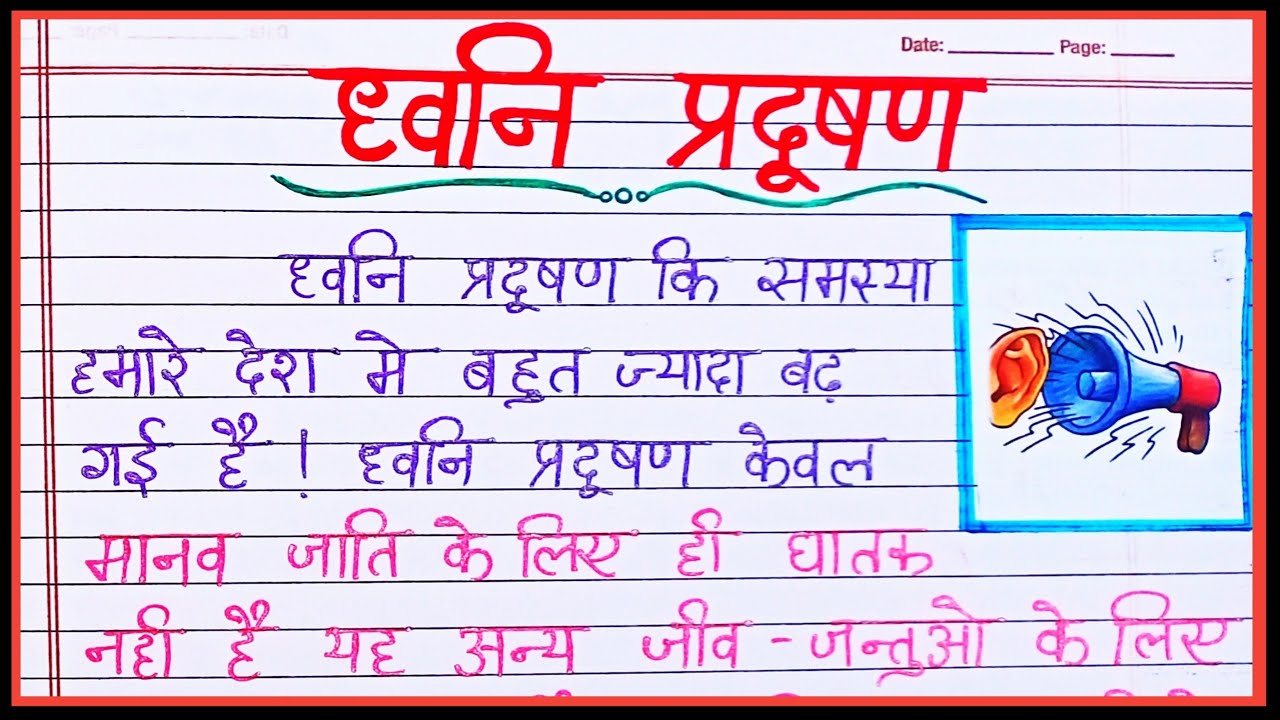 Date: ________ Page: _____
ध्वनि प्रदूषण
ध्वनि प्रदूषण कि समस्या
हमारे देश मे बहुत ज्यादा बढ़
गई है ! ध्वनि प्रदूषण केवल
मानव जाति के लिए ही घातक
नही है यह अन्य जीव - जन्तुओ के लिए